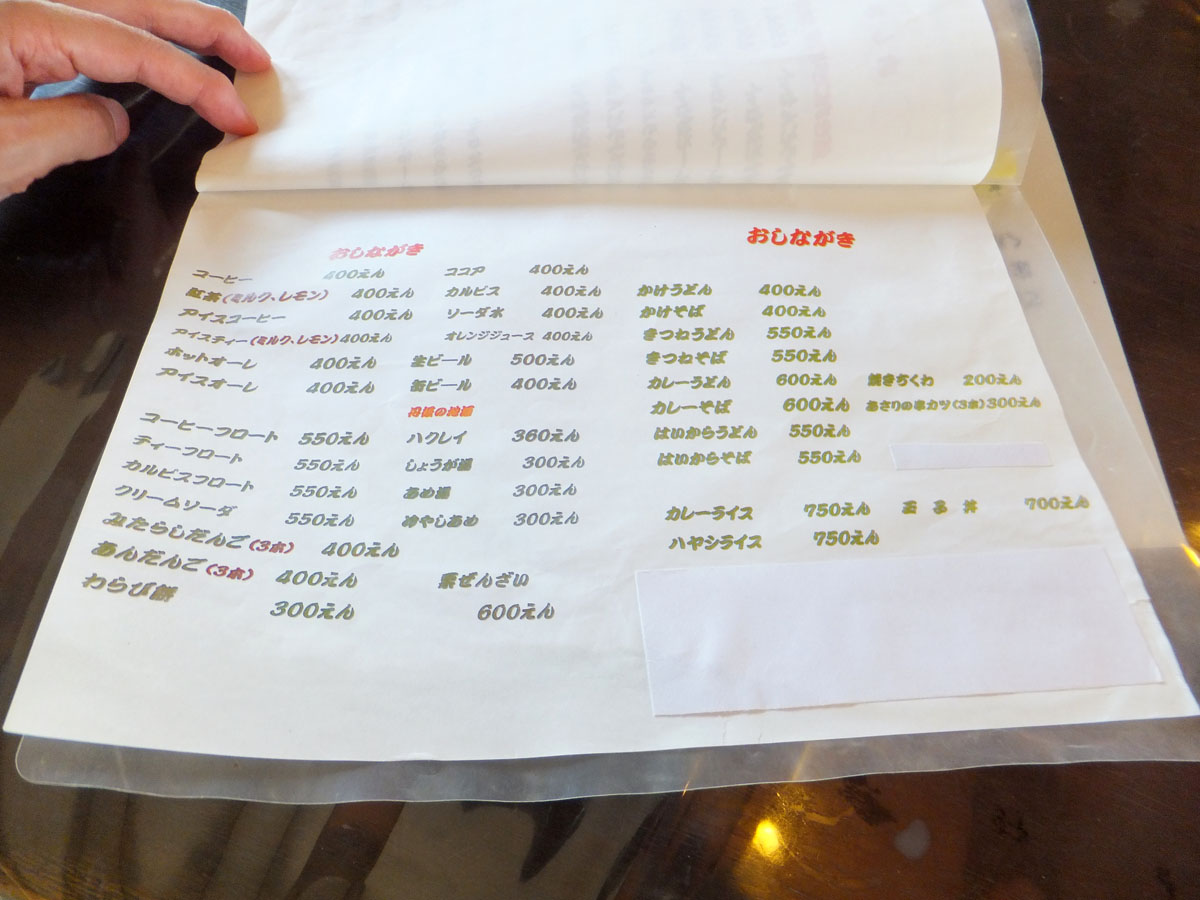 おしながき
コーヒー 400えん
紅茶(ミルク、レモン) 400えん
アイスコーヒー 400えん
アイスティー(ミルク、レモン) 400えん
ホットオーレ 400えん
アイスオーレ 400えん
コーヒーフロート 550えん
ティーフロート 550えん
カルピスフロート 550えん
クリームソーダ 550えん
みたらしだんご(3本) 400えん
あんだんご(3本) 400えん
わらび餅 300えん
ココア 400えん
カルピス 400えん
ソーダ水 400えん
オレンジジュース 400えん
生ビール 500えん
缶ビール 400えん
丹後の地酒
ハクレイ 360えん
しょうが湯 300えん
あめ湯 300えん
冷やしあめ 300えん
栗ぜんざい
600えん
おしながき
かけうどん 400えん
かけそば 400えん
きつねうどん 550えん
きつねそば 550えん
カレーうどん 600えん
カレーそば 600えん
はいからうどん 550えん
はいからそば 550えん
焼きちくわ 200えん
あさりの串カツ(3本) 300えん
カレーライス 750えん
ハヤシライス 750えん
玉子丼 700えん